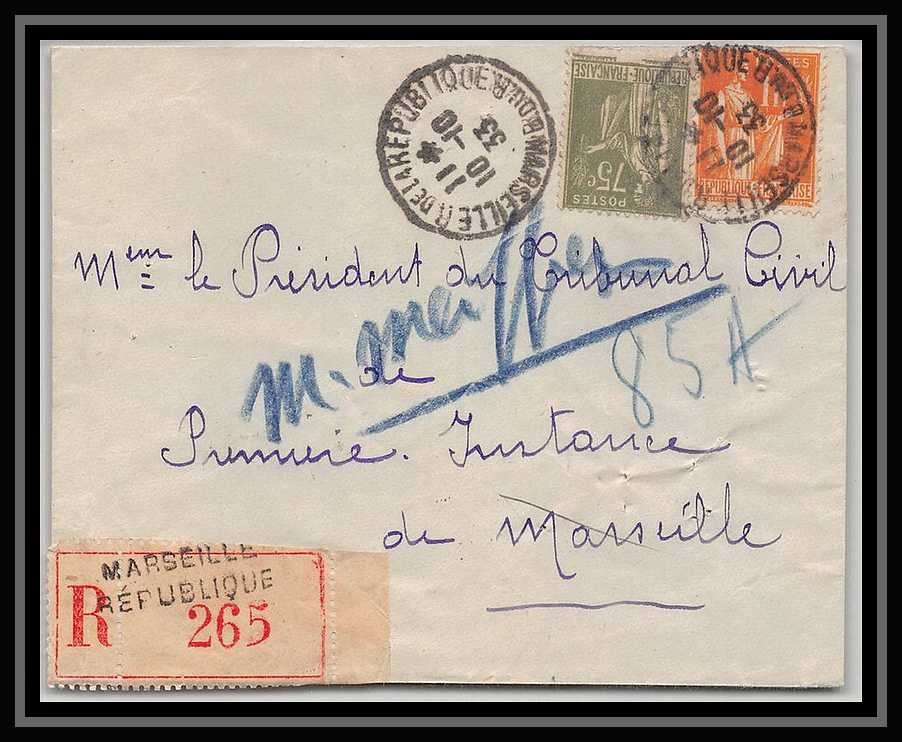 MARSEILLE R. DE LA REPUBLIQUE B. DU R.
11 *
10 -10
33
REPUBLIQUE-FRANCAISE
75c
POSTES
REPUBLIQUE FRANCAISE
11
10 -10
33
Meur le Président du Tribunal Civil
de
Premiere. Instance
de Marseille
M.
85A
MARSEILLE
RÉPUBLIQUE
R 265